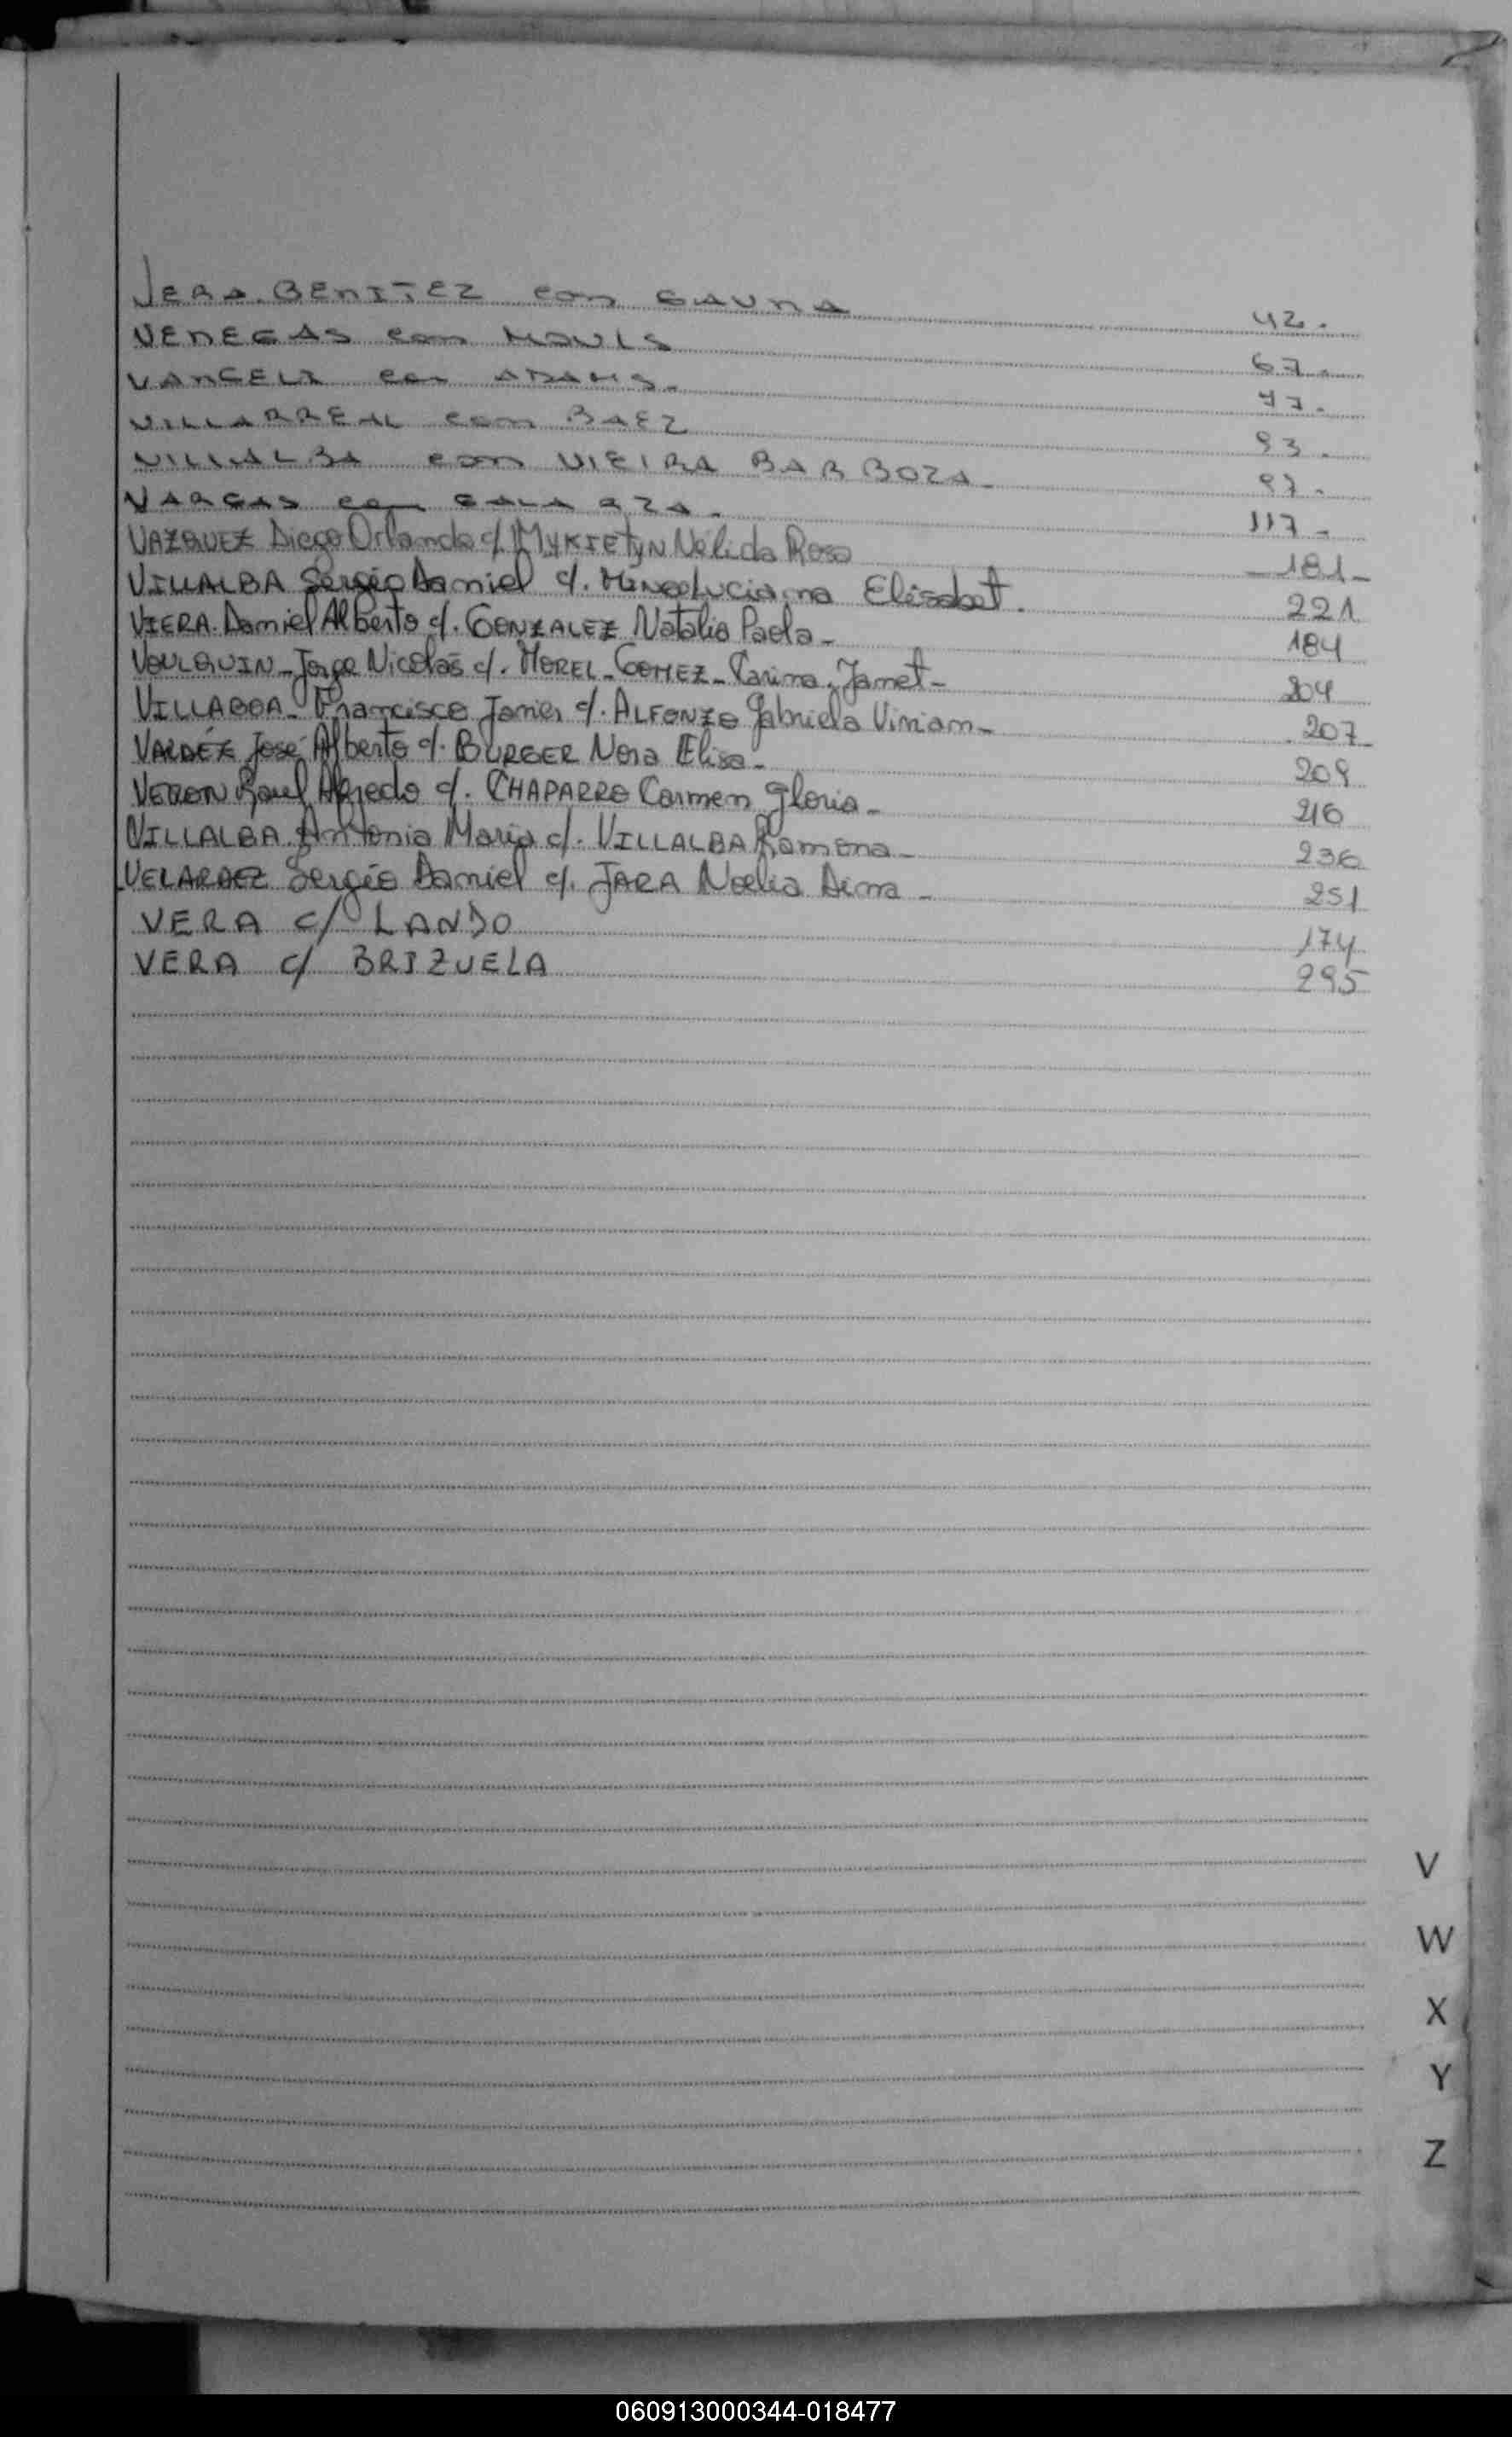 VERA BENITEZ con GAUNA 42.
VENEGAS con 67.
VANGELI con ADAMS. 77.
VILLARREAL con BAEZ 93.
VILLALBA con VIEIRA BARBOZA. 97.
VARGAS con 117.
VAZQUEZ Diego Orlando c/. MYKIETYN Nelida Rosa 181-
VILLALBA Sergio Daniel c/. Luciana Elisabet. 221
VIERA. Daniel Alberto c/. GONZALEZ Natalia Paola_ 184
VOULQUIN_Jorge Nicolás c/. MOREL_GOMEZ_Carina. Janet_ 204
VILLABOA_ Francisco Javier c/. ALFONZO Gabriela Viviam_ 207
VALDÉZ José Alberto c/. BURGER Nora Elisa_ 209
VERON Raul Alfredo c/. CHAPARRO Carmen Gloria_ 216
VILLALBA. Antonia Maria c/. VILLALBA Ramona_ 236
VELARDEZ Sergio Daniel c/. JARA Noelia Dina_ 251
VERA c/ LANDO 174
VERA c/ BRIZUELA 295
V
W
X
Y
Z
060913000344-018477